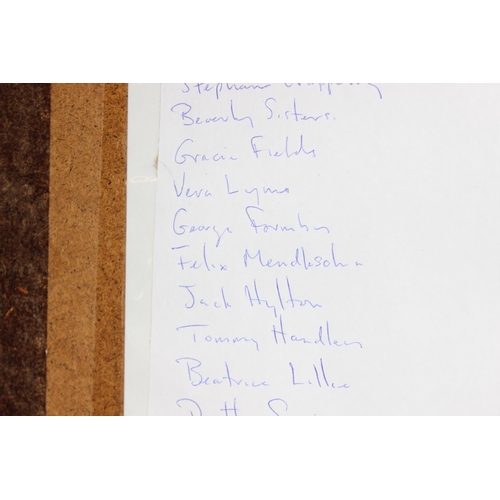 Stephane
Beverly Sisters.
Gracie Fields
Vera Lynns
George Formby
Felix Mendlesohn
Jack Hylton
Tommy Handley
Beatrice Lillie